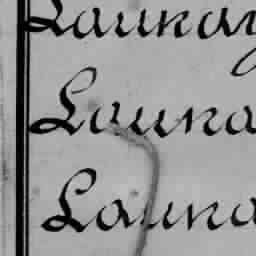 Launay
Launa
Launa